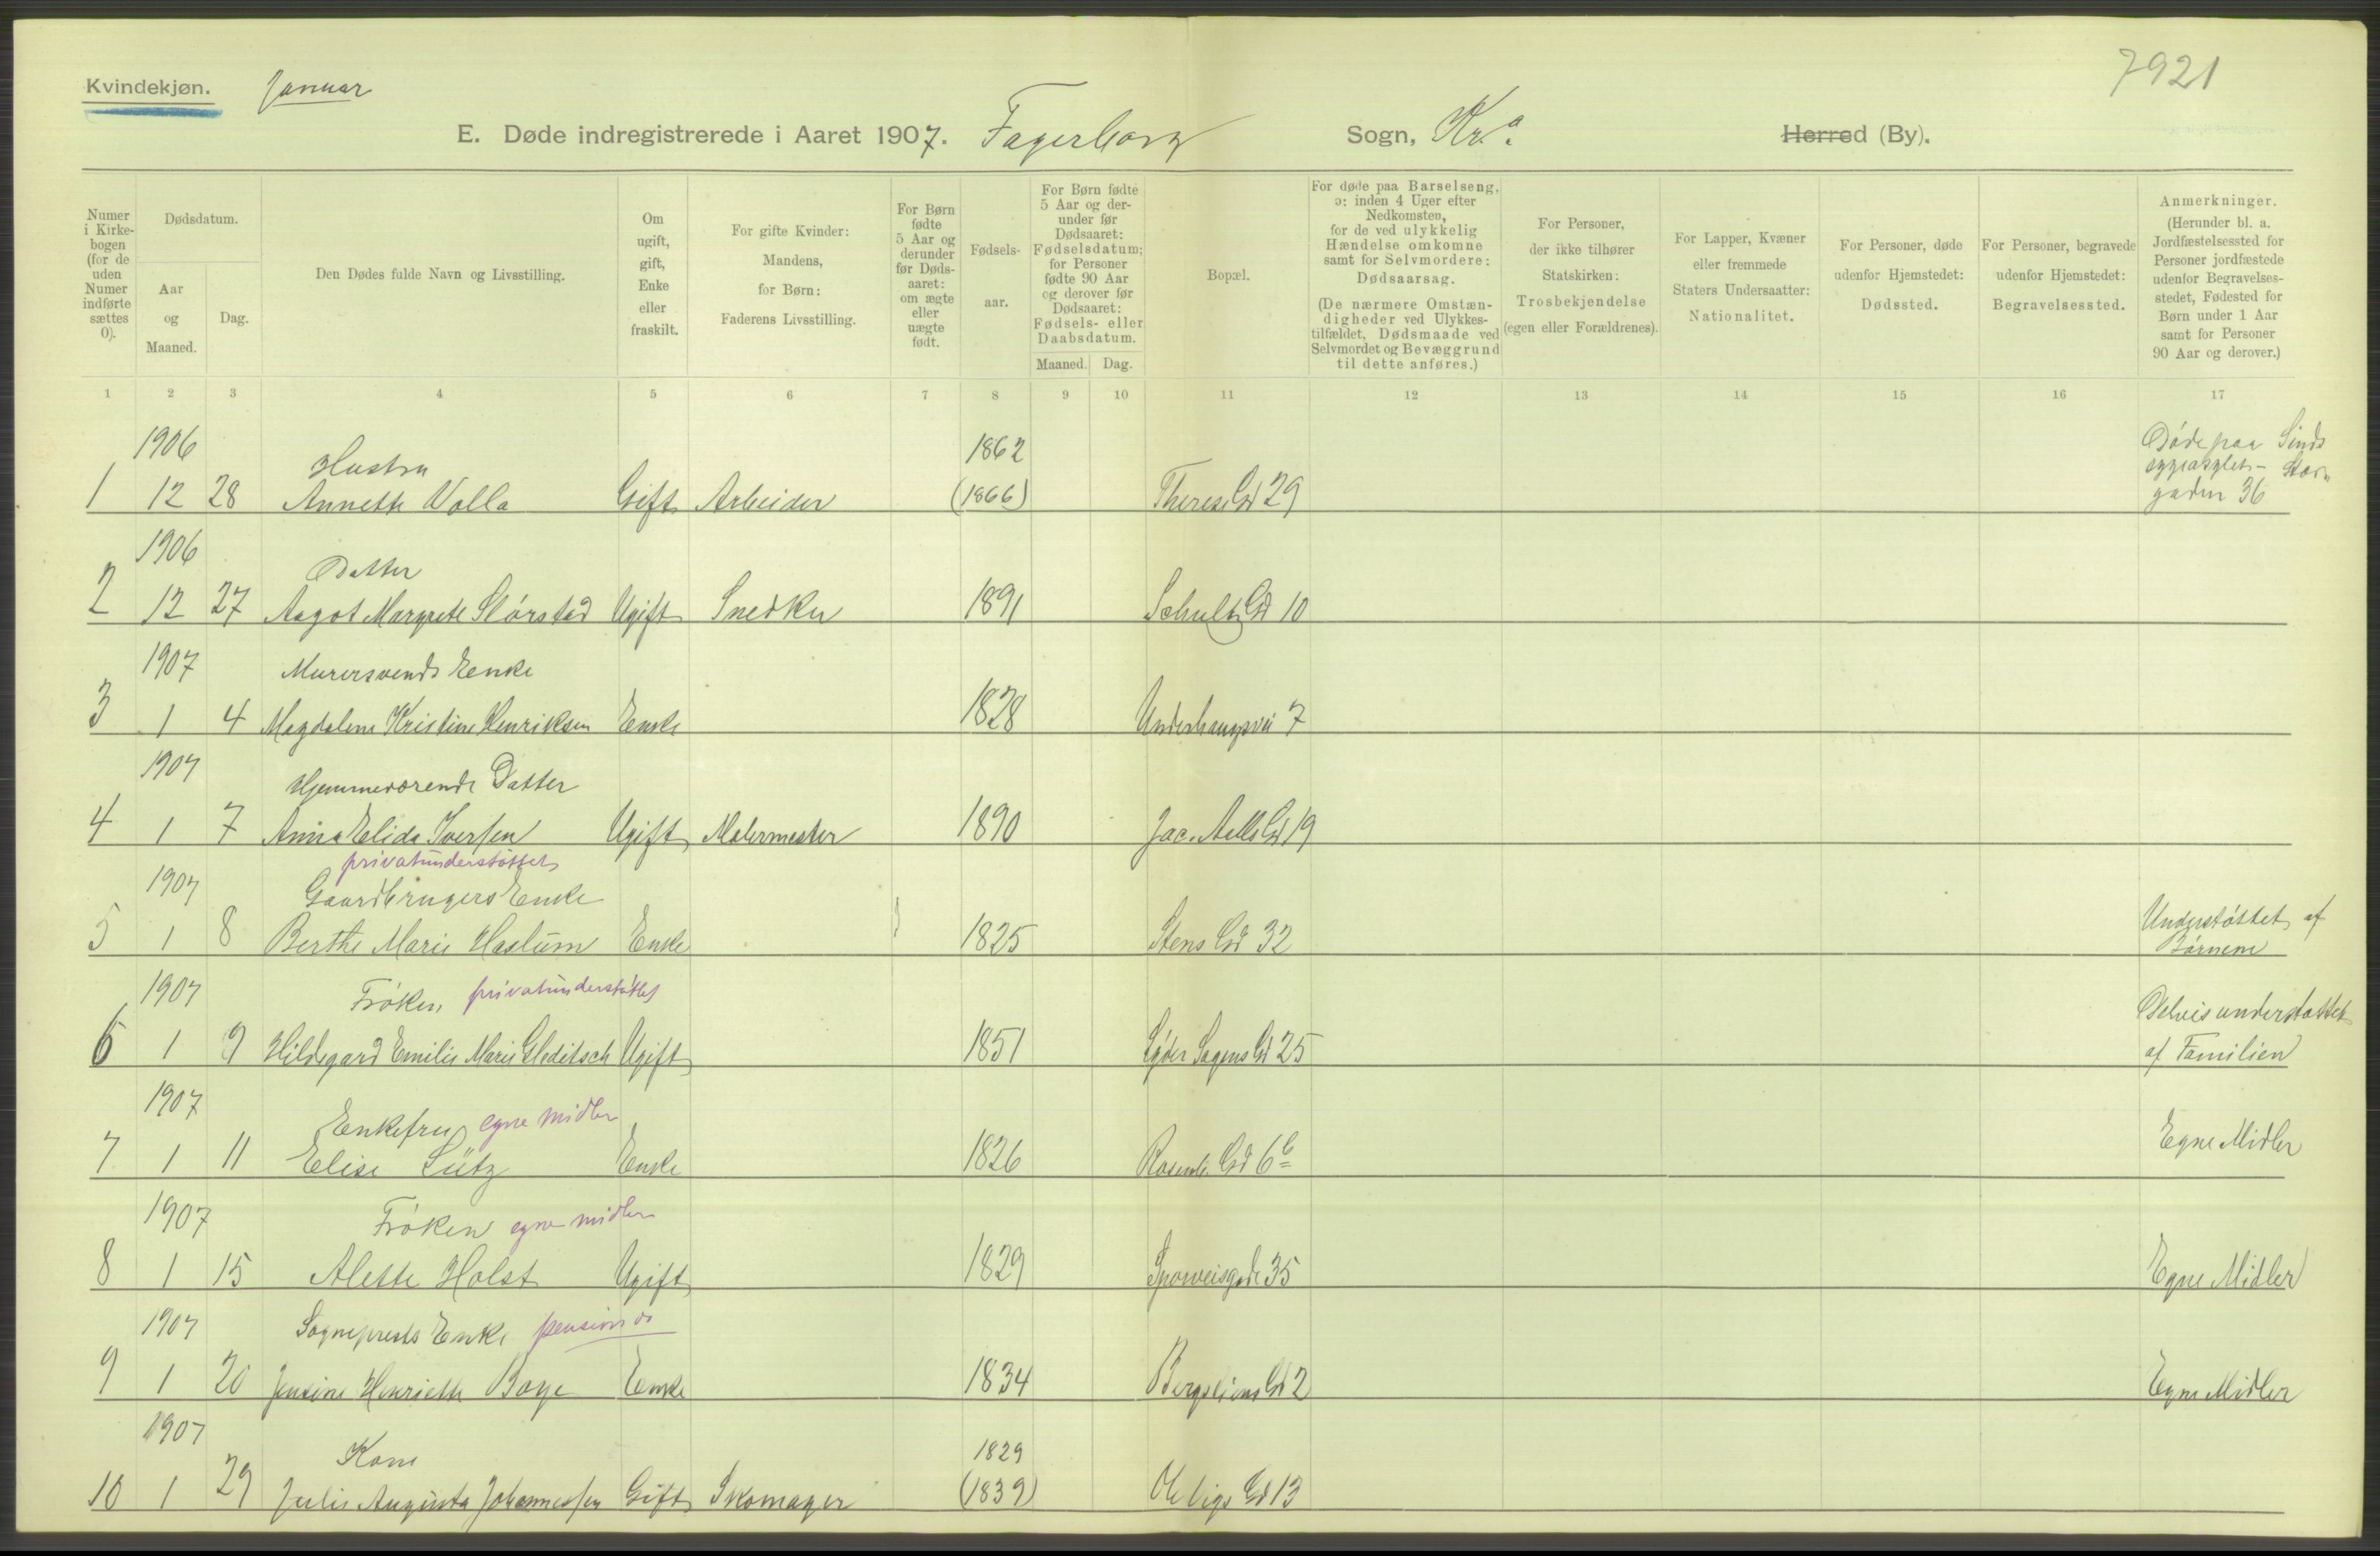 7921
Kvindekjøn. Januar
E. Døde indregistrerede i Aaret 1907. Fagerborg Sogn, Kr.a Herred (By).
Numer i Kirke-bogen (for de uden Numer indførte sættes 0).
Dødsdatum.
Aar og Maaned.
Dag.
Den Dødes fulde Navn og Livsstilling.
Om ugift, gift, Enke eller fraskilt.
For gifte Kvinder: Mandens, for Børn: Faderens Livsstilling.
For Børn fødte 5 Aar og derunder før Døds-aaret: om ægte eller uægte født.
Fødsels-aar.
For Børn fødte 5 Aar og der-under før Dødsaaret: Fødselsdatum; for Personer fødte 90 Aar og derover før Dødsaaret: Fødsels- eller Daabsdatum.
Maaned. Dag.
Bopæl.
For døde paa Barselseng, ɔ: inden 4 Uger efter Nedkomsten, for de ved ulykkelig Hændelse omkomne samt for Selvmordere: Dødsaarsag. (De nærmere Omstæn-digheder ved Ulykkes-tilfældet, Dødsmaade ved Selvmordet og Bevæggrund til dette anføres.)
For Personer, der ikke tilhører Statskirken: Trosbekjendelse (egen eller Forældrenes).
For Lapper, Kvæner eller fremmede Staters Undersaatter: Nationalitet.
For Personer, døde udenfor Hjemstedet: Dødssted.
For Personer, begravede udenfor Hjemstedet: Begravelsessted.
Anmerkninger. (Herunder bl. a. Jordfæstelsessted for Personer jordfæstede udenfor Begravelses-stedet, Fødested for Børn under 1 Aar samt for Personer 90 Aar og derover.)
1 2 3 4 5 6 7 8 9 10 11 12 13 14 15 16 17
1906 Hustru 1862 Døde paa Sinds
sygeasylet - Stor-
1 12 28 Annette Volla Gift Arbeider (1866) Therese Gd 29 gaden 36
1906 Datter
2 12 27 Aagot Margrete Skørstad Ugift Snedker 1891 Schultz Gd 10
1907 Murersvends Enke
3 1 4 Magdalene Kristine Henriksen Enke 1828 Underhaugsvei 7
1907 Hjemmeværende Datter
4 1 7 Anna Elida Iversen Ugift Malermester 1890 Jac. Aalls Gd 19
privatunderstøttet
1907 Gaardbrugers Enke Understøttet af
5 1 8 Berthe Marie Haslum Enke 1825 Stens Gd 32 Børnene
1907 Frøken privatunderstøttet Delvis understøttet
6 1 9 Hildegard Emilie Marie Gleditsch Ugift 1851 Lyder Sagens Gd 25 af Familien
1907 Enkefru egne midler
7 1 11 Elise Lütz Enke 1826 Rosenb. Gd 6b Egne Midler
1907 Frøken egne midler
8 1 15 Alette Holst Ugift 1829 Sporveisgade 35 Egne Midler
1907 Sogneprests Enke pension
9 1 20 Jensine Henriette Boye Enke 1834 Bergsliens Gd 2 Egne Midler
1907 Kone 1829
10 1 29 Julie Augusta Johannessen Gift Skomager (1839) Ole Vigs Gd 13